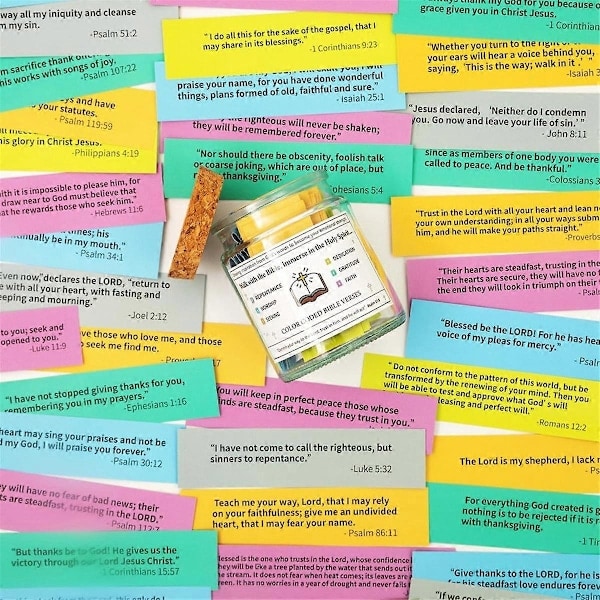 way all my iniquity and cleanse
m my sin.
-Psalm 51:2
"I do all this for the sake of the gospel, that I
may share in its blessings."
-1 Corinthians 9:23
always thank my God for you because of
grace given you in Christ Jesus.
-1 Corinthians
"Whether you turn to the right or
your ears will hear a voice behind you,
saying, 'This is the way; walk in it.'"
-Isaiah 3
sacrifice thank
his works with songs of joy.
-Psalm 107:22
praise your name, for you have done wonderful
things, plans formed of old, faithful and sure."
- Isaiah 25:1
ys and have
your statutes.
- Psalm 119:59
the righteous will never be shaken;
they will be remembered forever."
"Jesus declared, 'Neither do I condemn
you. Go now and leave your life of sin.'"
- John 8:11
his glory in Christ Jesus.
-Philippians 4:19
"Nor should there be obscenity, foolish talk
or coarse joking, which are out of place, but
thanksgiving."
Ephesians 5:4
since as members of one body you were
called to peace. And be thankful."
-Colossians 3
ith it is impossible to please him, for
draw near to God must believe that
at he rewards those who seek him.
-Hebrews 11:6
"Trust in the Lord with all your heart and lean n
your own understanding; in all your ways submi
him, and he will make your paths straight".
-Proverbs
times; his
nually be in my mouth."
-Psalm 34:1
Walk with the Bible, Immerse in the Holy Spirit...
REPENTANCE
WORSHIP
GIVING
DEDICATION
GRATITUDE
FAITH
COLOR CODED BIBLE VERSES
"Their hearts are steadfast, trusting in the
Their hearts are secure, they will have no f
the end they will look in triumph on their
-Psalm
Even now," declares the LORD, "return to
e with all your heart, with fasting and
eeping and mourning."
-Joel 2:12
"Blessed be the LORD! For he has hea
voice of my pleas for mercy."
-Psalm
to you; seek and
opened to you."
-Luke 11:9
ove those who love me, and those
seek me find me.
"Do not conform to the pattern of this world, but be
transformed by the renewing of your mind. Then you
will be able to test and approve what God's will
pleasing and perfect will."
-Romans 12:2
"I have not stopped giving thanks for you,
remembering you in my prayers."
-Ephesians 1:16
You will keep in perfect peace those whose
minds are steadfast, because they trust in you."
heart may sing your praises and not be
d my God, I will praise you forever."
-Psalm 30:12
"I have not come to call the righteous, but
sinners to repentance."
-Luke 5:32
The Lord is my shepherd, I lack
ey will have no fear of bad news; their
ts are steadfast, trusting in the LORD,"
-Psalm 112:7
Teach me your way, Lord, that I may rely
on your faithfulness; give me an undivided
heart, that I may fear your name.
- Psalm 86:11
For everything God created is g
nothing is to be rejected if it is r
with thanksgiving.
-1 Tim
"But thanks be to God! He gives us the
victory through our Lord Jesus Christ."
-1 Corinthians 15:57
Blessed is the one who trusts in the Lord, whose confidence
They will be like a tree planted by the water that sends out it
the stream. It does not fear when heat comes; its leaves are
It has no worries in a year of drought and never fails
"Give thanks to the LORD, for he is
his steadfast love endures forever
"If we confess